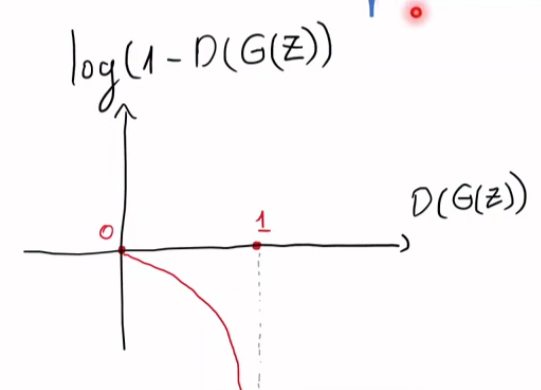 log(1-D(G(Z))
D(G(Z))
0
1